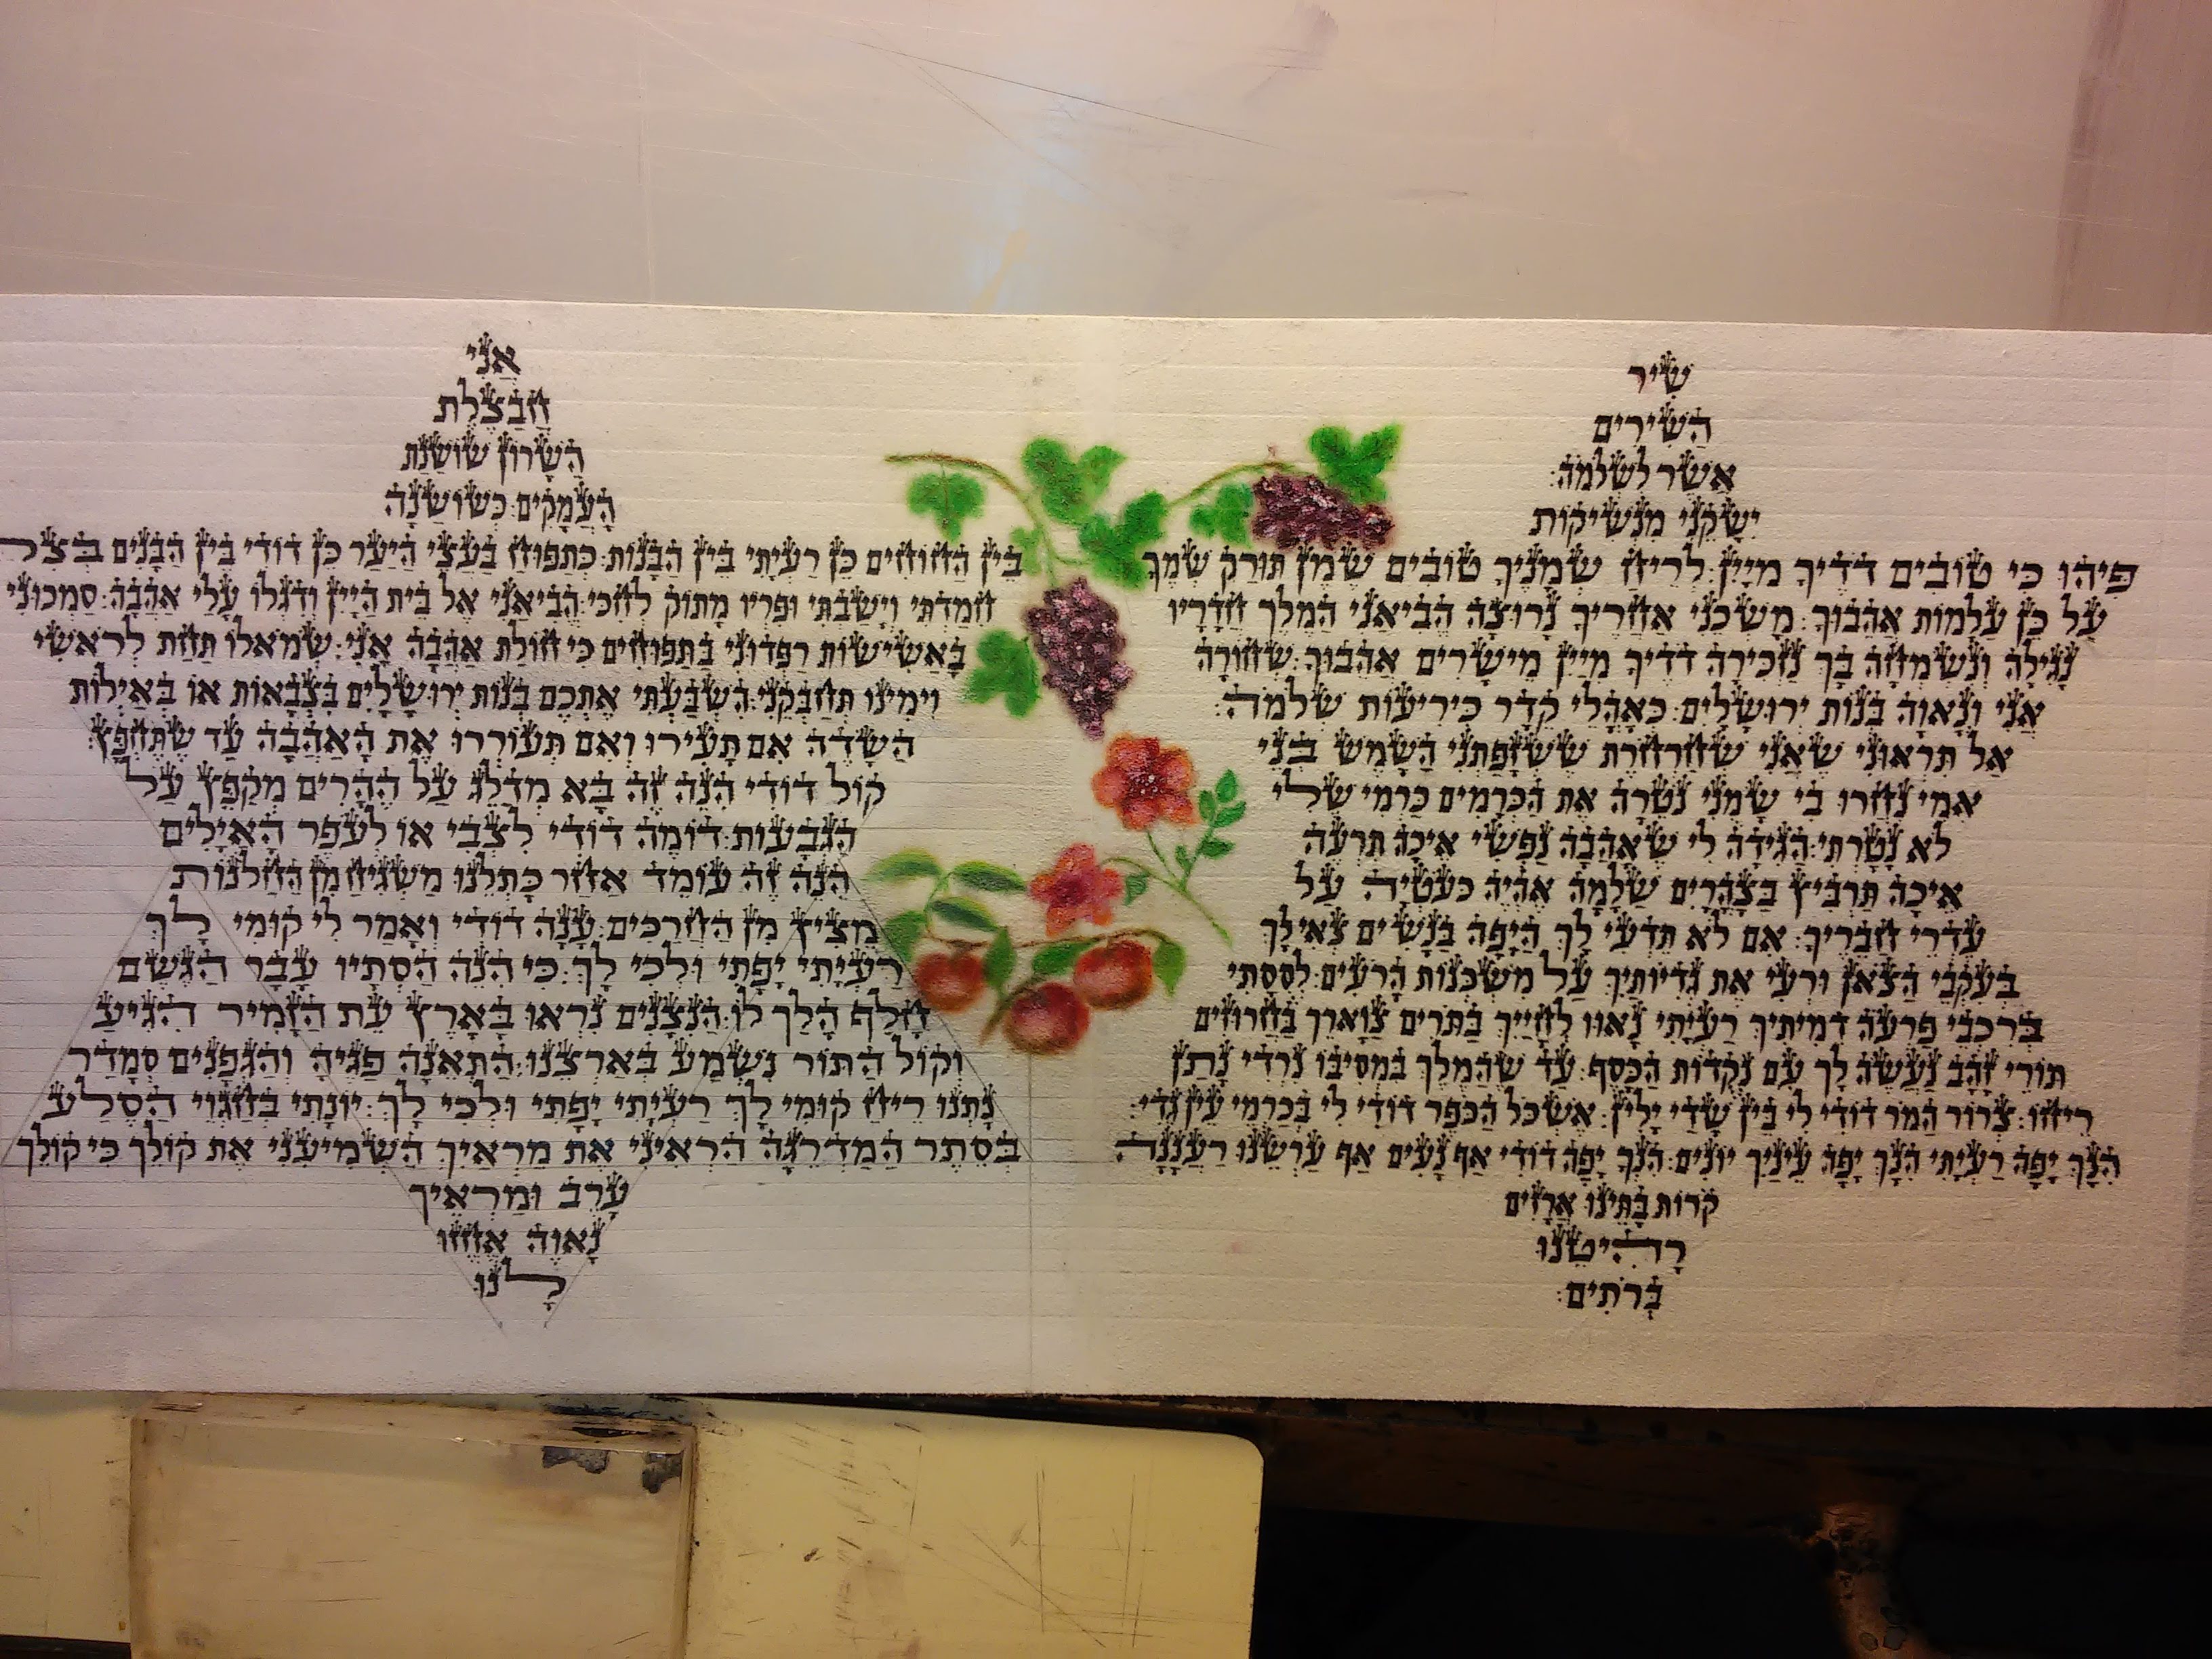 שיר
השירים
אשר לשלמה:
ישקני מנשיקות
פיהו כי טובים דדיך מיין: לריח שמניך טובים שמן תורק שמך
על כן עלמות אהבוך: משכני אחריך נרוצה הביאני המלך חדריו
נגילה ונשמחה בך נזכירה דדיך מיין מישרים אהבוך: שחורה
אני ונאוה בנות ירושלים: כאהלי קדר כיריעות שלמה:
אל תראוני שאני שחרחרת ששזפתני השמש בני
אמי נחרו בי שמני נטרה את הכרמים כרמי שלי
לא נטרתי: הגידה לי שאהבה נפשי איכה תרעה
איכה תרביץ בצהרים שלמה אהיה כעטיה על
עדרי חבריך: אם לא תדעי לך היפה בנשים צאי לך
בעקבי הצאן ורעי את גדיותיך על משכנות הרעים: לססתי
ברכבי פרעה דמיתיך רעיתי נאוו לחייך בתרים צוארך בחרוזים
תורי זהב נעשה לך עם נקדות הכסף: עד שהמלך במסיבו נרדי נתן
ריחו: צרור המר דודי לי בין שדי ילין: אשכל הכפר דודי לי בכרמי עין גדי:
הנך יפה רעיתי הנך יפה עיניך יונים: הנך יפה דודי אף נעים אף ערשנו רעננה
קרות בתינו ארזים
רהיטנו
ברתים:
אני
חבצלת
השרון שושנת
העמקים: כשושנה
בין החוחים כן רעיתי בין הבנות: כתפוח בעצי היער כן דודי בין הבנים בצלו
חמדתי וישבתי ופריו מתוק לחכי: הביאני אל בית היין ודגלו עלי אהבה: סמכוני
באשישות רפדוני בתפוחים כי חולת אהבה אני: שמאלו תחת לראשי
וימינו תחבקני: השבעתי אתכם בנות ירושלים בצבאות או באילות
השדה אם תעירו ואם תעוררו את האהבה עד שתחפץ:
קול דודי הנה זה בא מדלג על ההרים מקפץ על
הגבעות: דומה דודי לצבי או לעפר האילים
הנה זה עומד אחר כתלנו משגיח מן החלנות
מציץ מן החרכים: ענה דודי ואמר לי קומי לך
רעיתי יפתי ולכי לך: כי הנה הסתיו עבר הגשם
חלף הלך לו: הנצנים נראו בארץ עת הזמיר הגיע
וקול התור נשמע בארצנו: התאנה פגיה והגפנים סמדר
נתנו ריח קומי לך רעיתי יפתי ולכי לך: יונתי בחגוי הסלע
בסתר המדרגה הראיני את מראיך השמיעני את קולך כי קולך
ערב ומראיך
נאוה אחזו
לנו